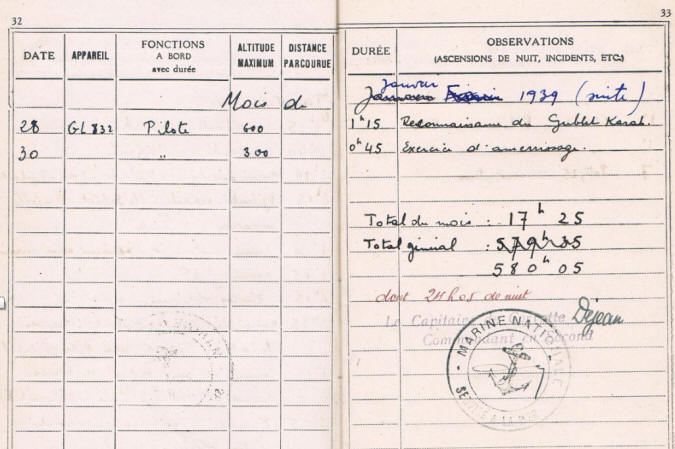 32
33
DATE APPAREIL FONCTIONS A BORD avec durée ALTITUDE MAXIMUM DISTANCE PARCOURUE DURÉE OBSERVATIONS (ASCENSIONS DE NUIT, INCIDENTS, ETC.)
Janvier
Mois de 1939 (suite)
28 GL 832 Pilote 600 1h15 Reconnaissance du Gubbet Karab.
30 " 300 0h45 Exercice d'amerrissage.
Total du mois : 17h 25
Total général : 579h35
580h05
dont 24h05 de nuit
Le Capitaine de Corvette Déjean
Commandant en Second
MARINE NATIONALE